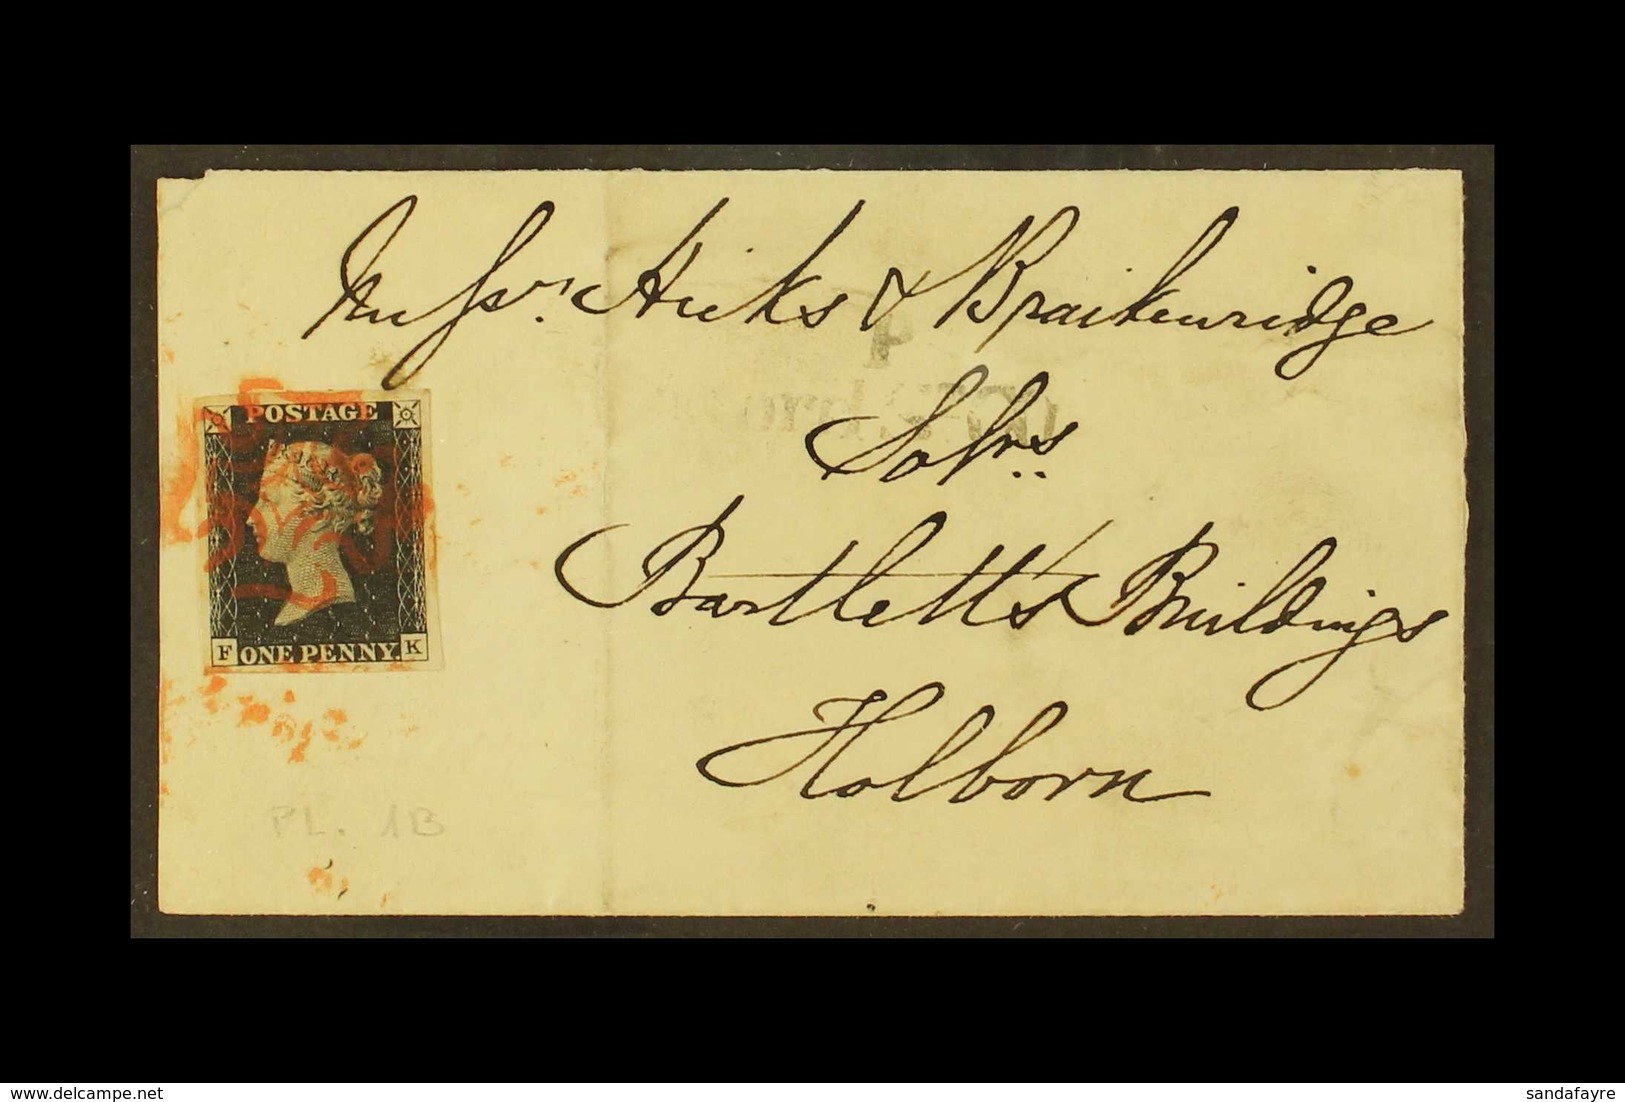 Messrs. Hicks & Braikenridge
POSTAGE
Solrs
Bartlett's Buildings
F ONE PENNY. K
Holborn
PL. 1B
www.delcampe.net
sandafayre